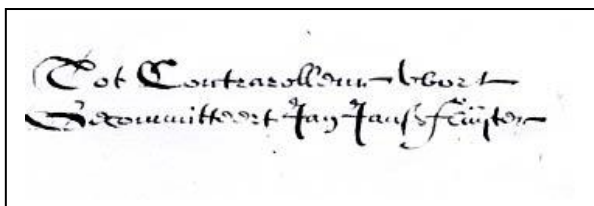 Tot Contrarolleur wort
Gecommitteert Jan Jansz